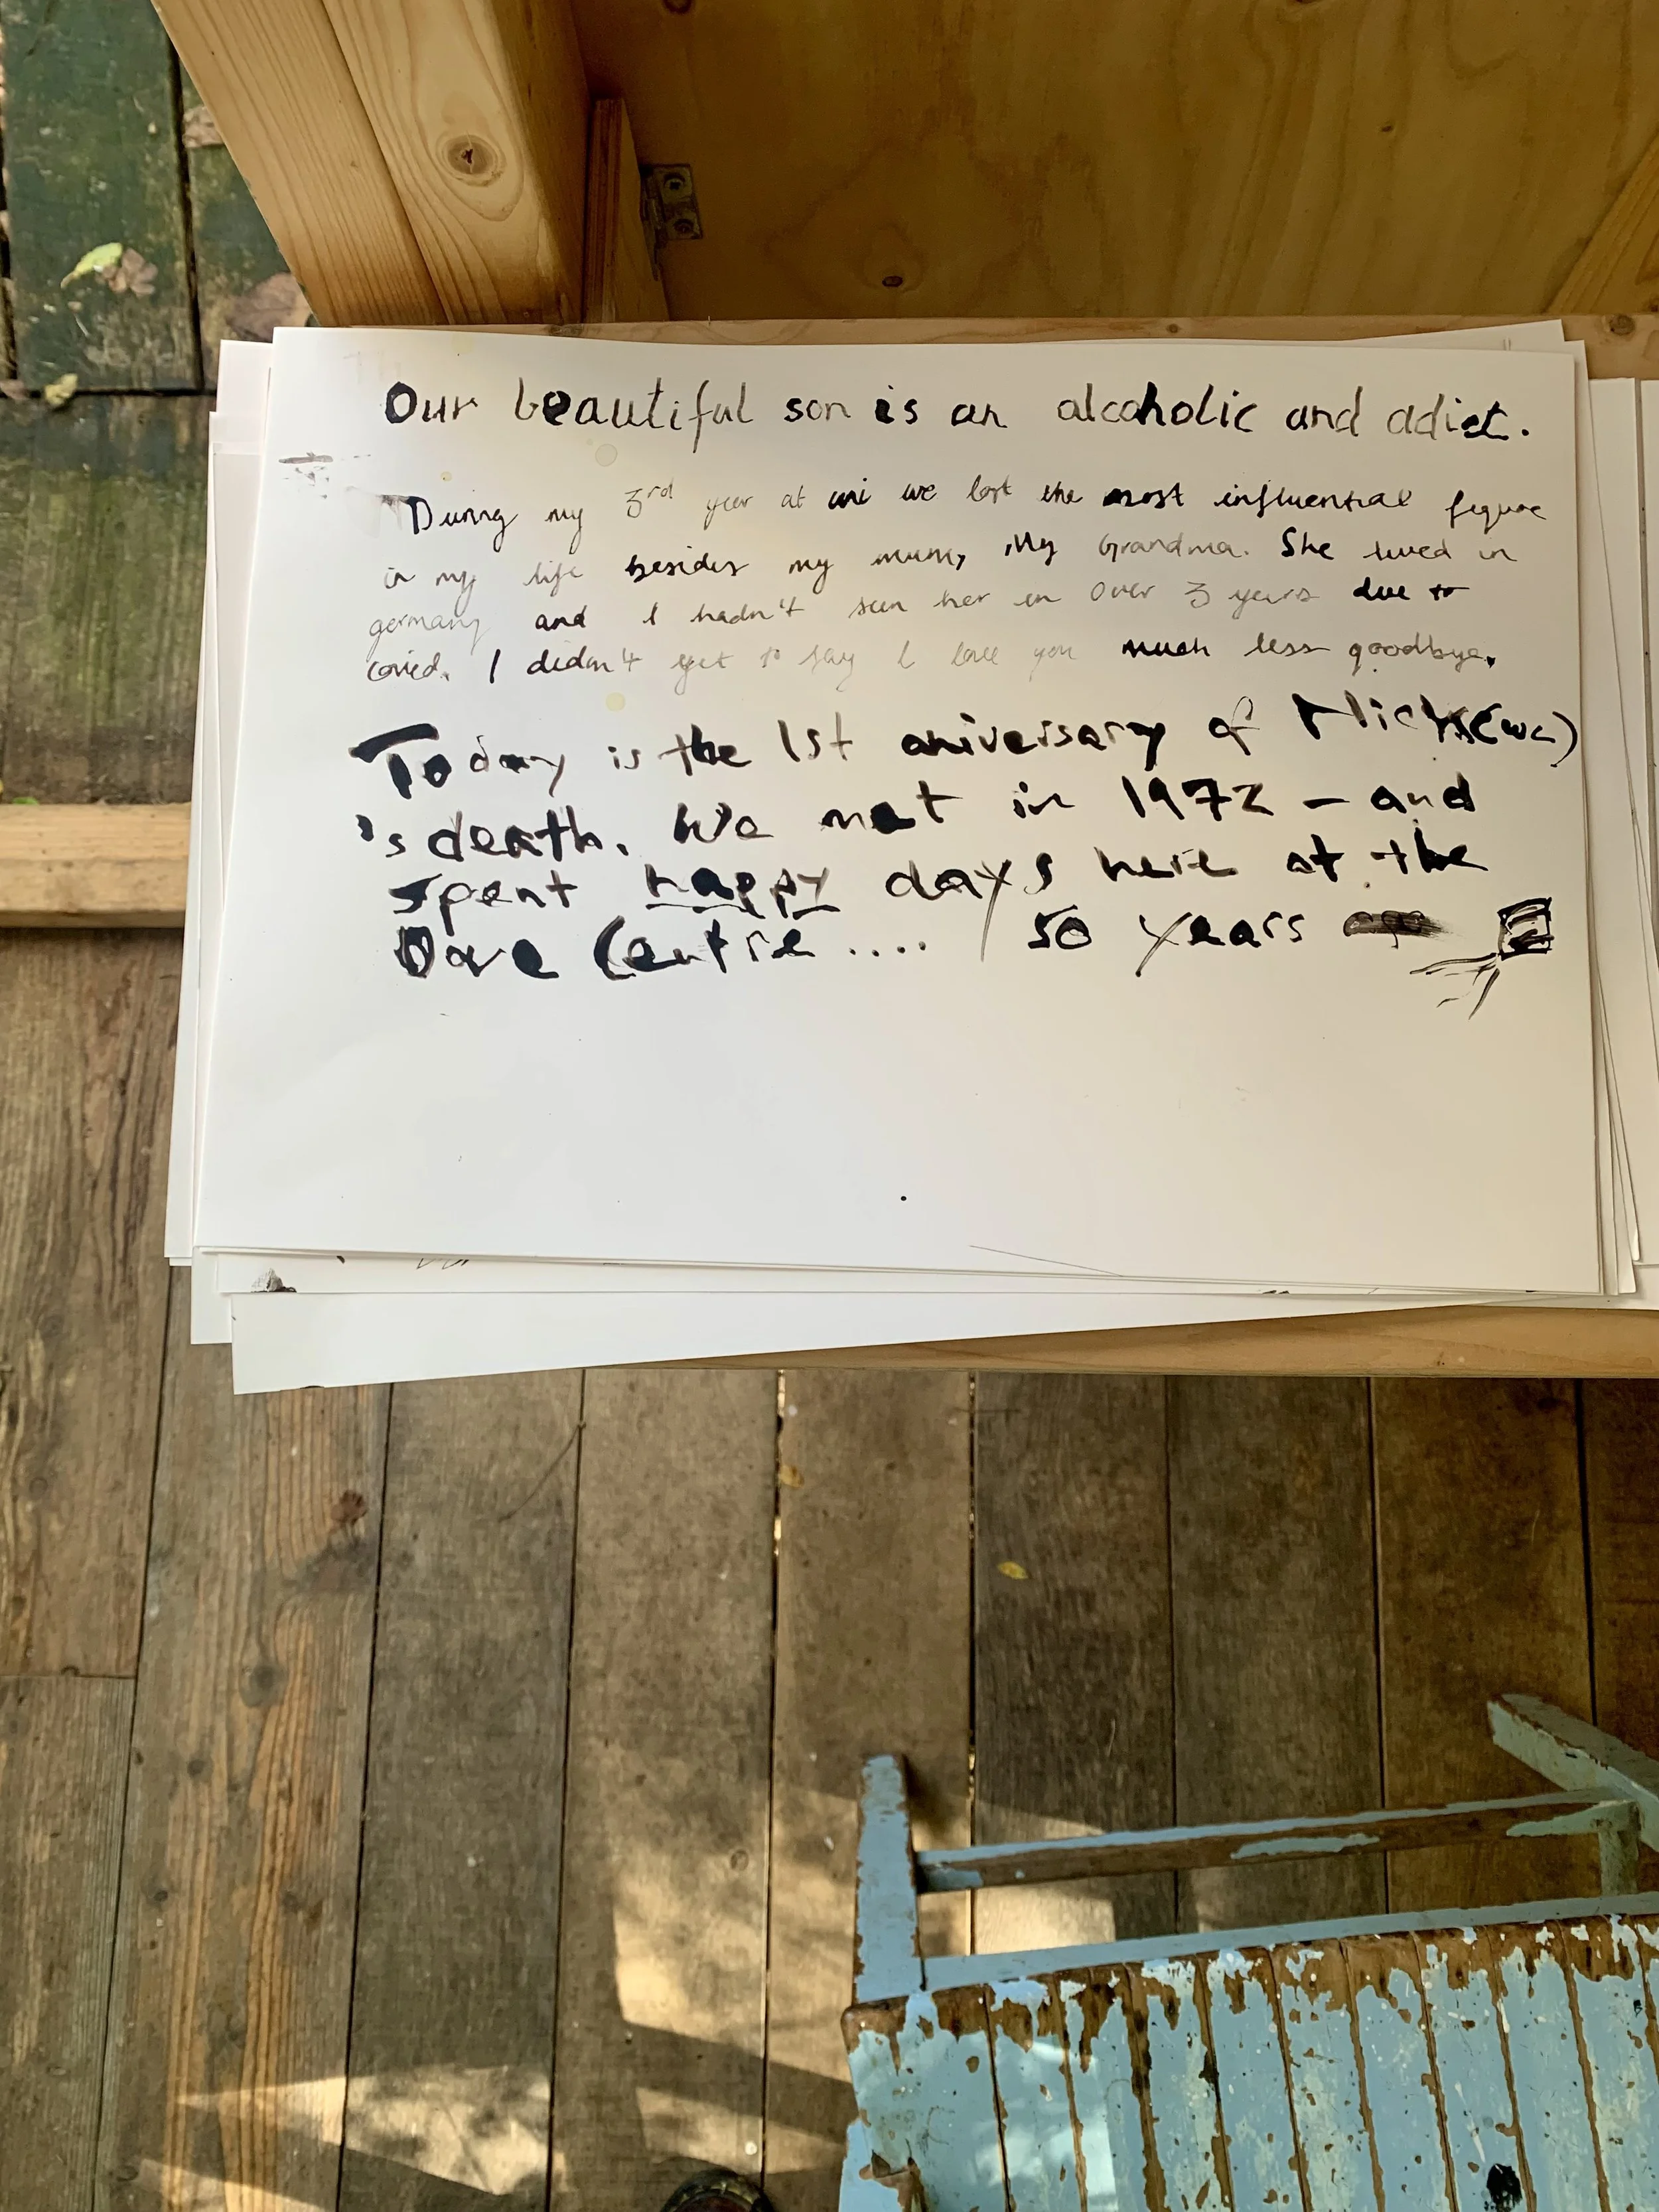 Our beautiful son is an alcoholic and adict.
During my 3rd year at uni we lost the most influential figure
in my life besides my mum, My Grandma. She lived in
germany and I hadn't seen her in over 3 years due to
covid. I didn't get to say I love you much less goodbye.
Today is the 1st aniversary of
's death. We met in 1972 - and
spent happy days here at the
Dove Centre .... 50 years